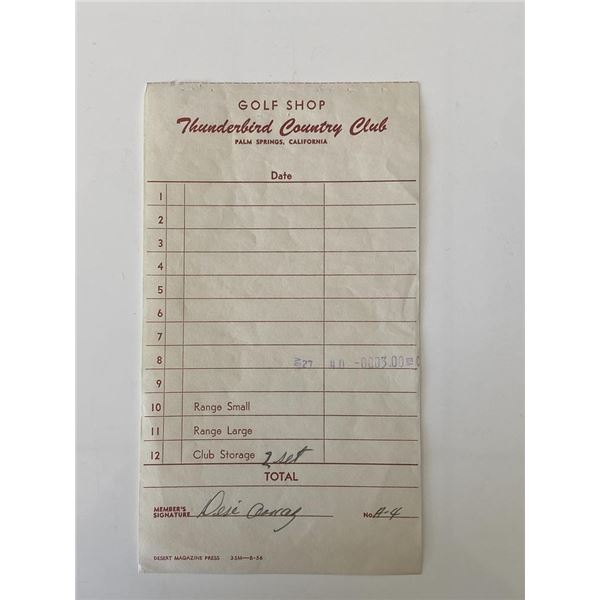 GOLF SHOP
Thunderbird Country Club
PALM SPRINGS, CALIFORNIA
Date
1
2
3
4
5
6
7
8 27 40 -0003.00
9
10 Range Small
11 Range Large
12 Club Storage 2 set
TOTAL
MEMBER'S SIGNATURE Desi Arnaz No. A-4
DESERT MAGAZINE PRESS 35M—8-56